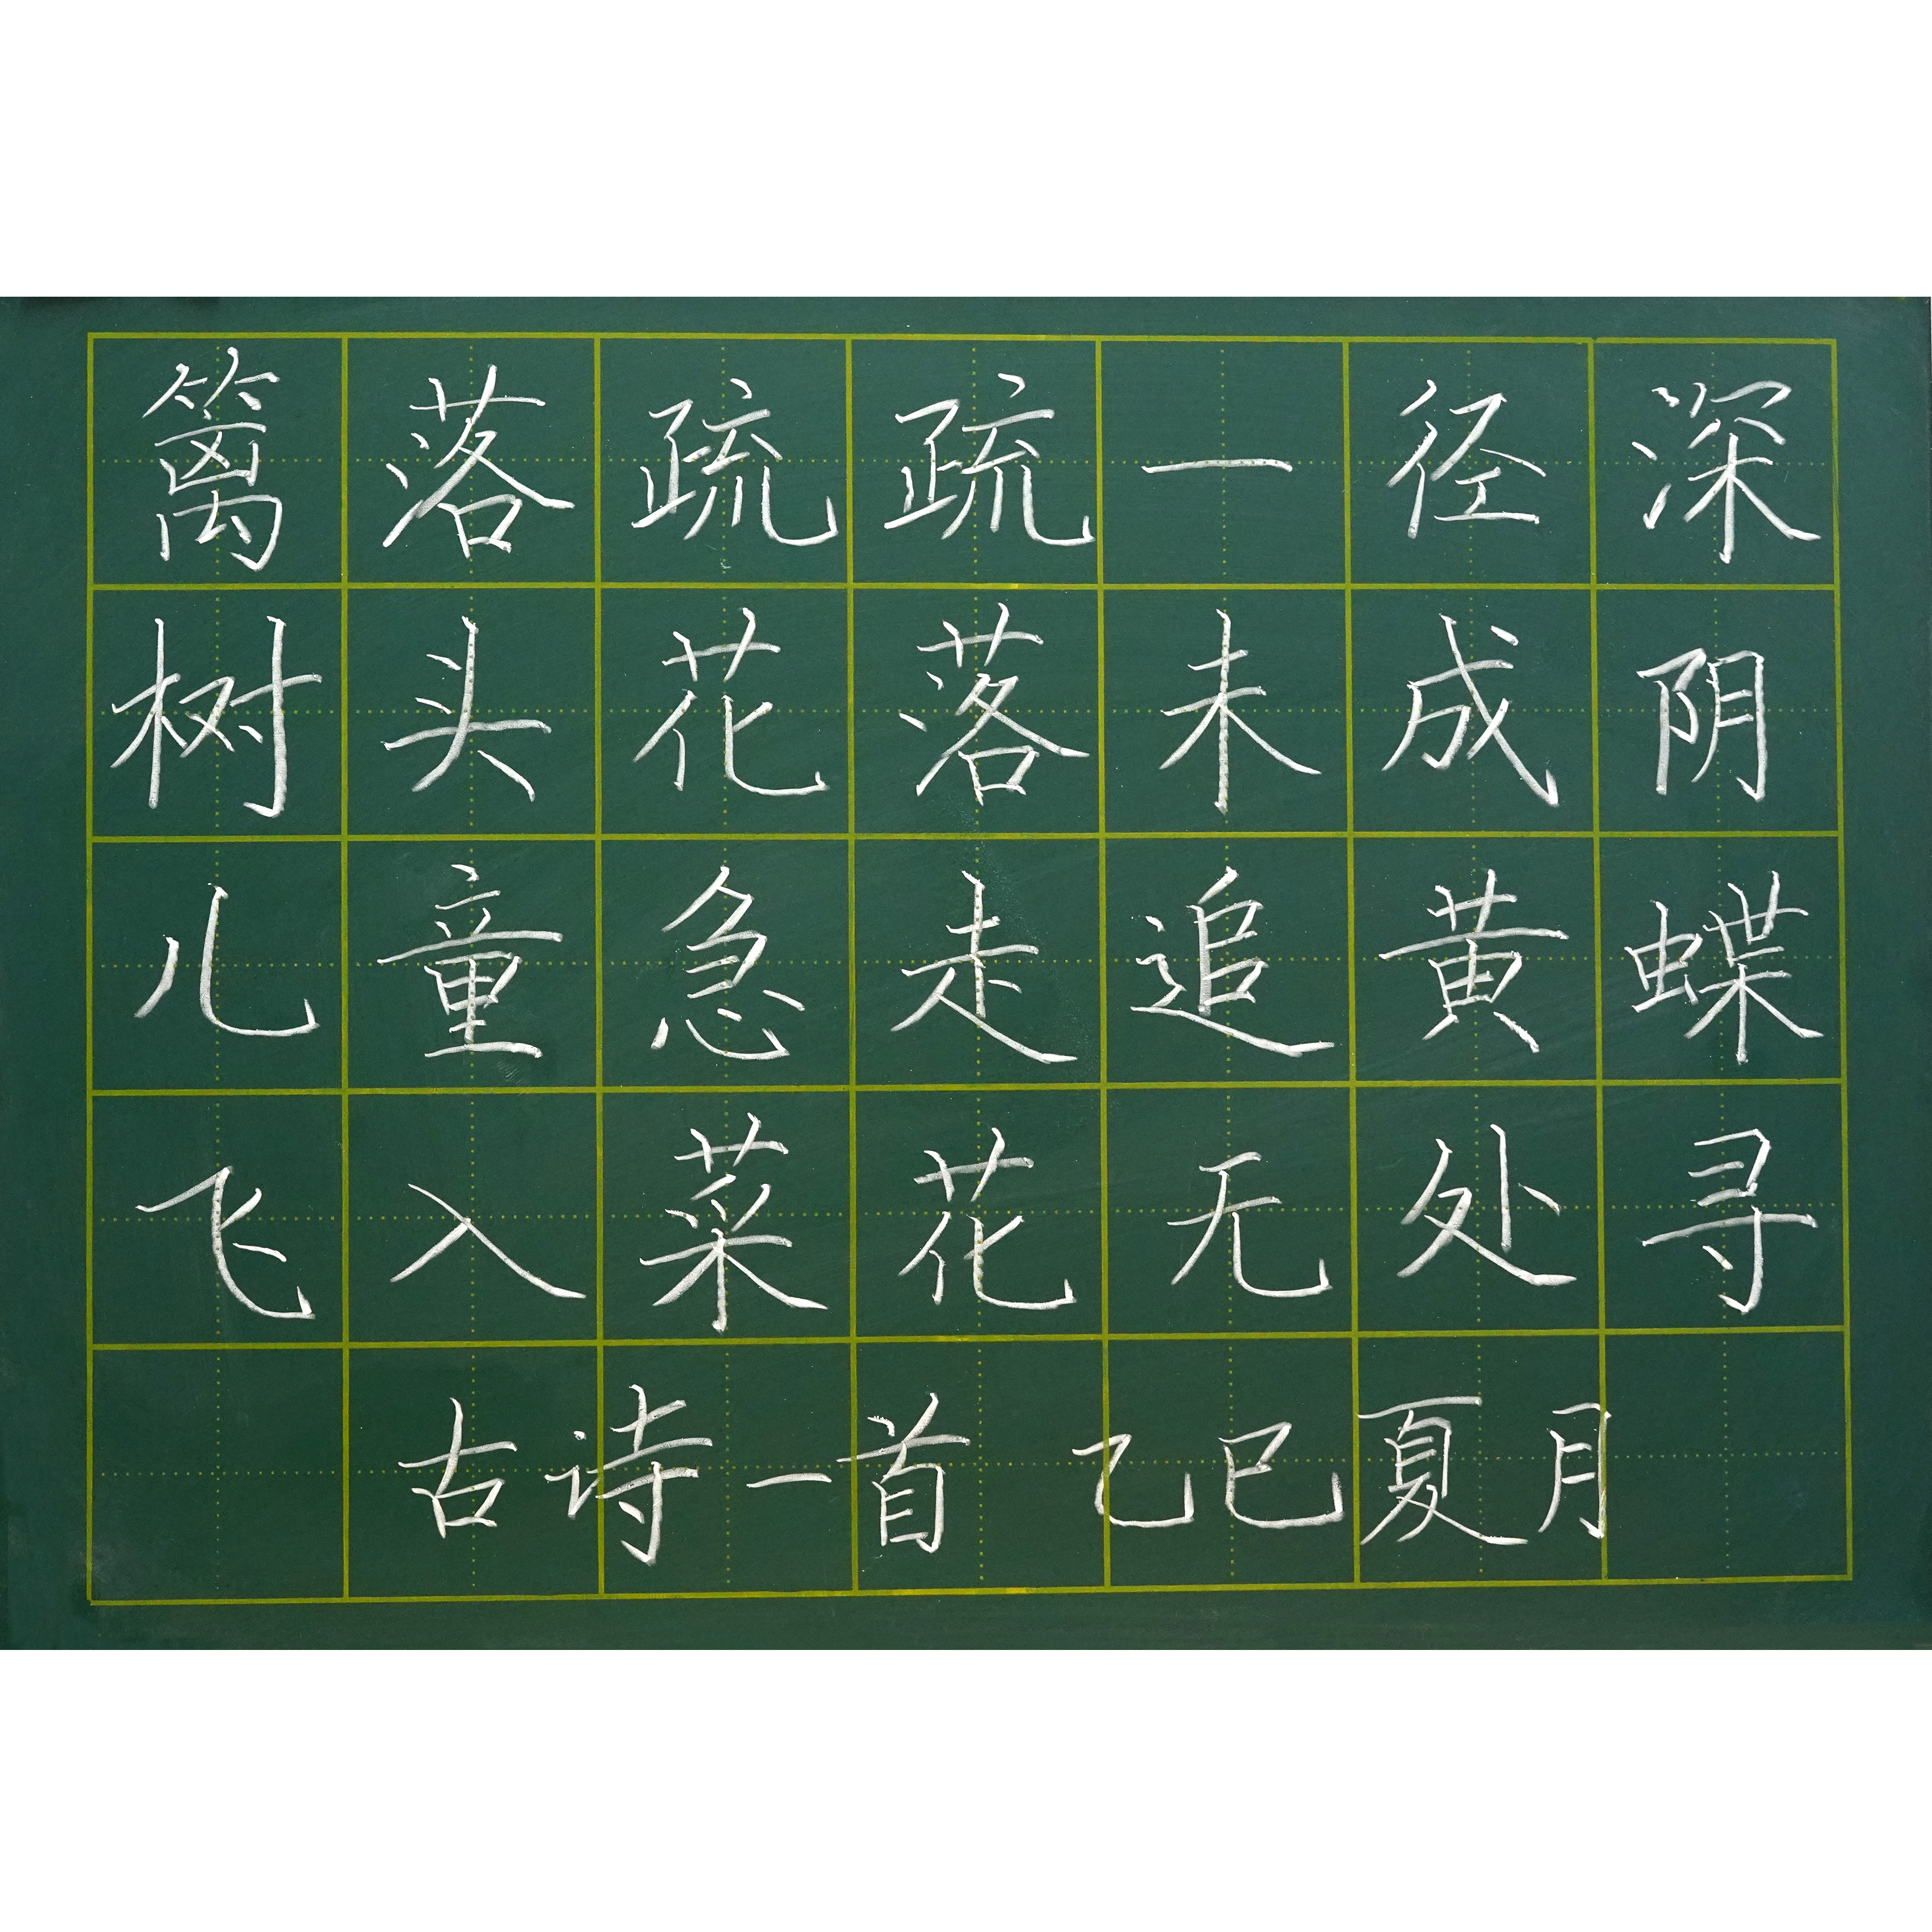 篱落疏疏一径深
树头花落未成阴
儿童急走追黄蝶
飞入菜花无处寻
古诗一首 乙巳夏月